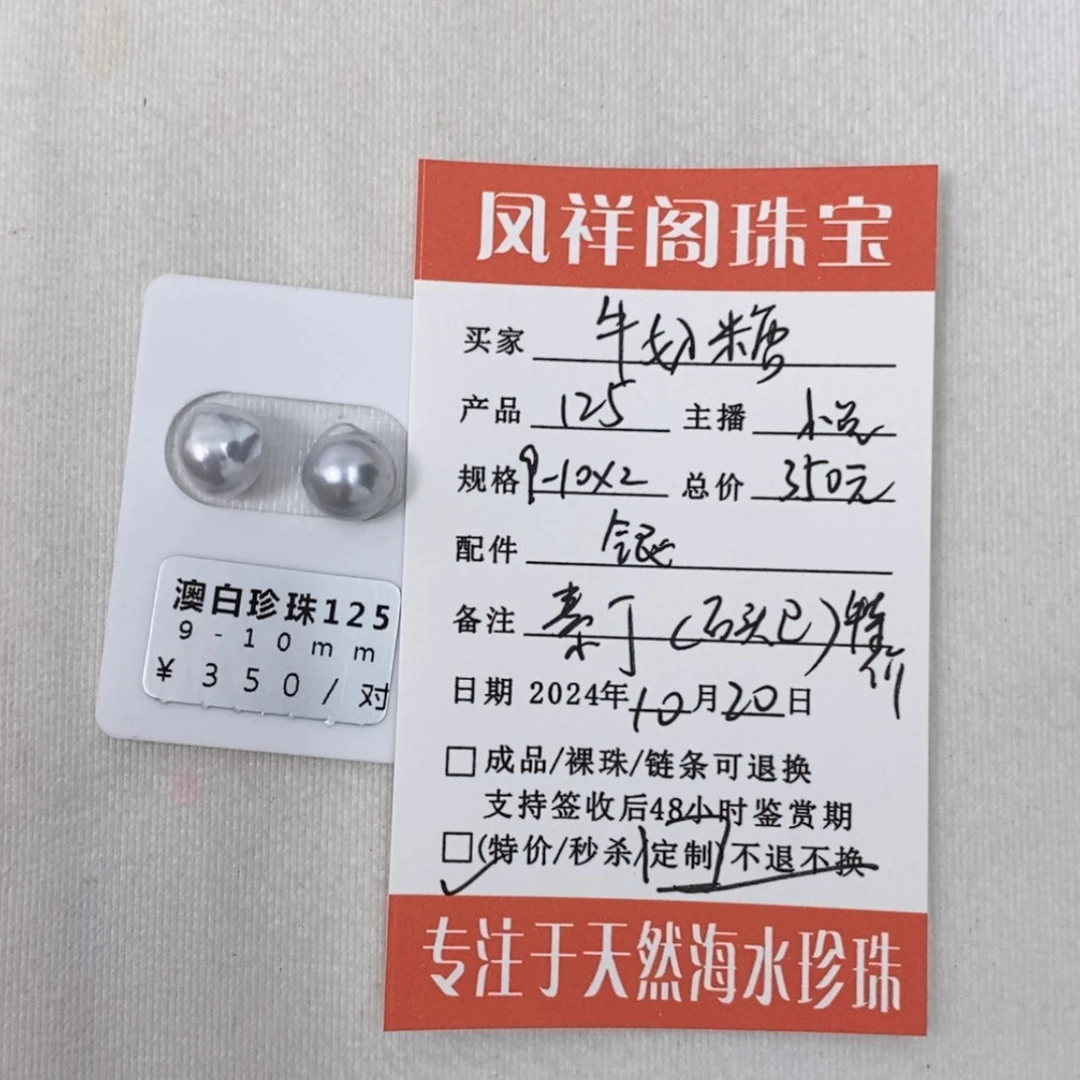 凤祥阁珠宝
买家 牛奶糖
产品 125 主播
规格 9-10x2 总价 350元
配件 银
备注 素丁(石头已)特价
日期 2024年10月20日
成品/裸珠/链条可退换
支持签收后48小时鉴赏期
(特价/秒杀/定制)不退不换
专注于天然海水珍珠
澳白珍珠125
9-10mm
¥350/对